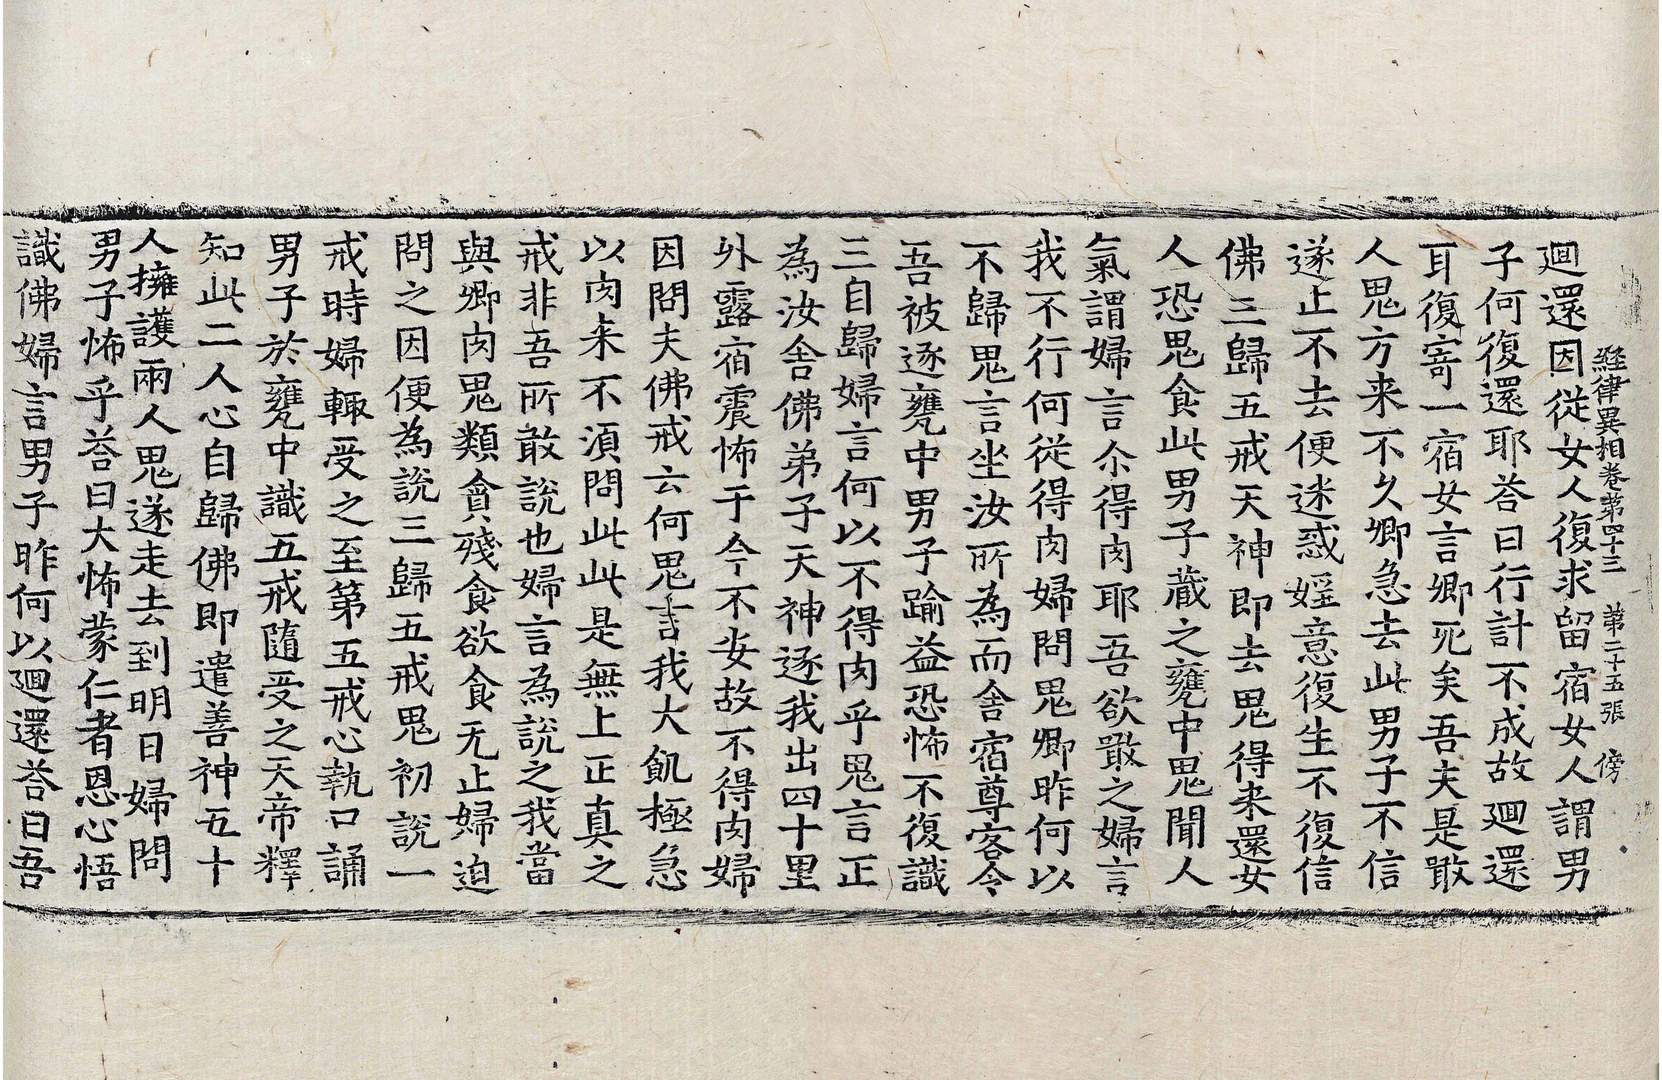 經律異相卷第四十三　第二十五張　傍
廻還因從女人復求留宿女人謂男
子何復還耶荅曰行計不成故廻還
耳復寄一宿女言卿死矣吾夫是噉
人鬼方来不久卿急去此男子不信
遂止不去便迷惑婬意復生不復信
佛三歸五戒天神即去鬼得来還女
人恐鬼食此男子藏之甕中鬼聞人
氣謂婦言尒得肉耶吾欲噉之婦言
我不行何從得肉婦問鬼卿昨何以
不歸鬼言坐汝所為而舍宿尊客令
吾被逐甕中男子踰益恐怖不復識
三自歸婦言何以不得肉乎鬼言正
為汝舍佛弟子天神逐我出四十里
外露宿震怖于今不安故不得肉婦
因問夫佛戒云何鬼言我大飢極急
以肉来不須問此此是無上正真之
戒非吾所敢說也婦言為說之我當
與卿肉鬼類貪殘食欲食无止婦迫
問之因便為說三歸五戒鬼初說一
戒時婦輙受之至第五戒心執口誦
男子於甕中識五戒隨受之天帝釋
知此二人心自歸佛即遣善神五十
人擁護兩人鬼遂走去到明日婦問
男子怖乎荅曰大怖蒙仁者恩心悟
識佛婦言男子昨何以廻還荅曰吾